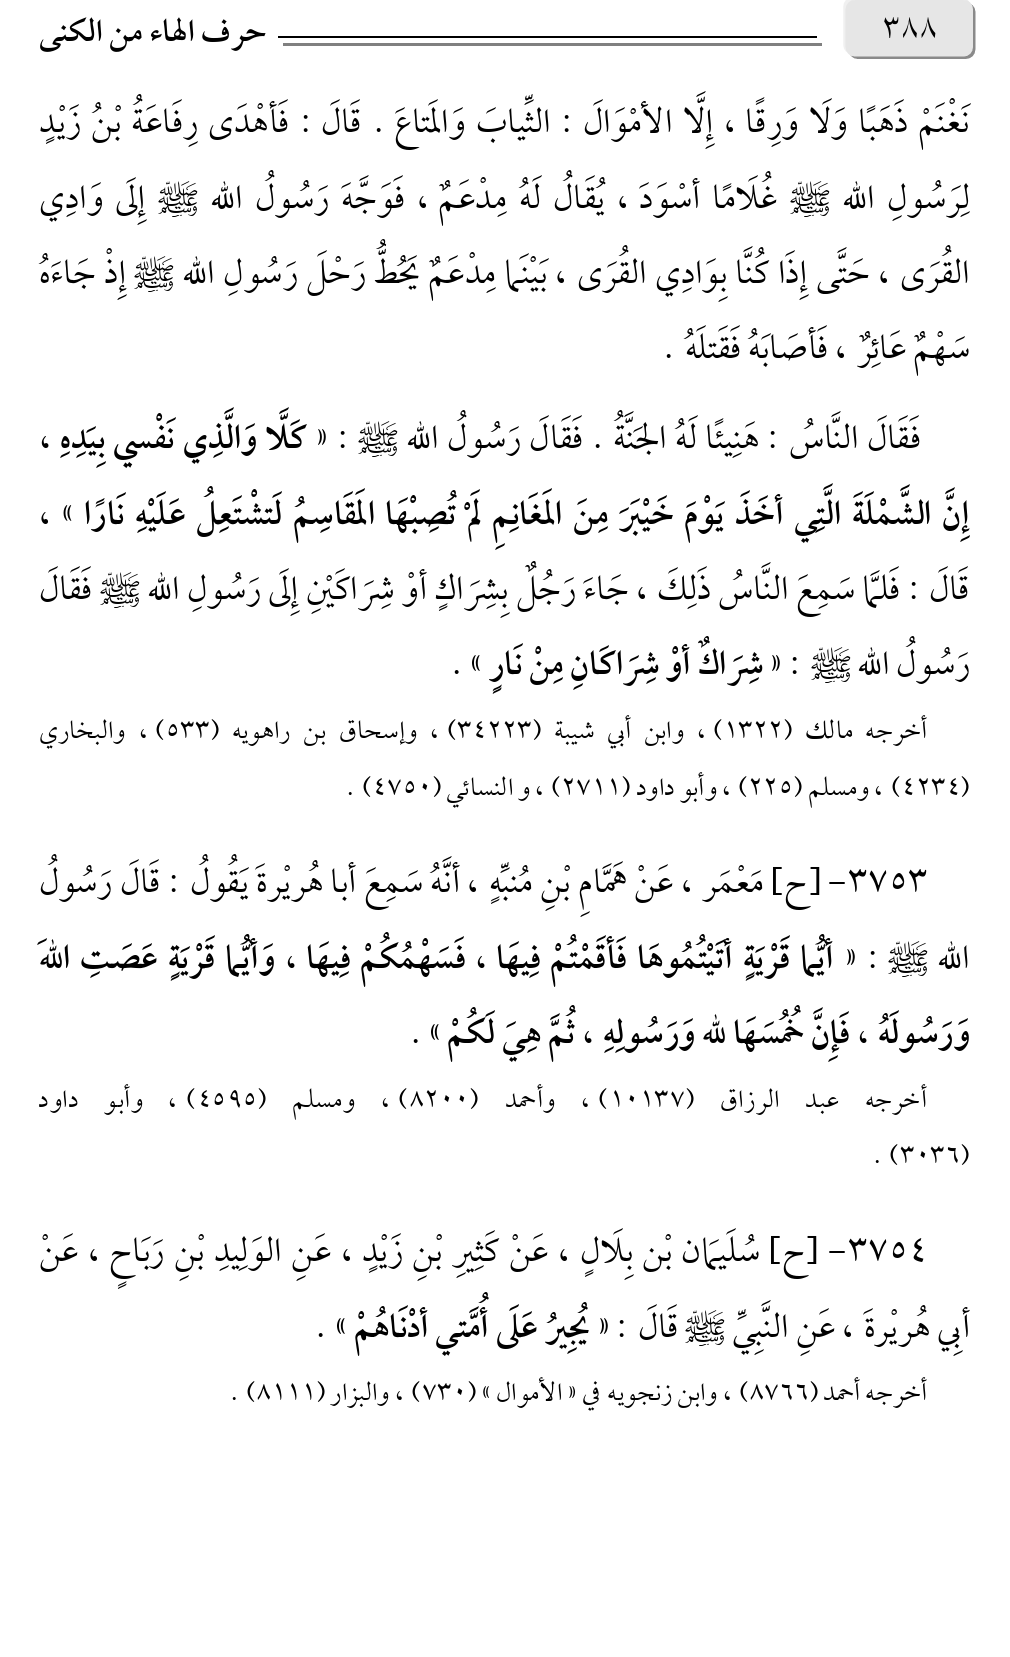 ٣٨٨ حرف الهاء من الكنى
نَغْنَمْ ذَهَبًا وَلَا وَرِقًا ، إِلَّا الأمْوَالَ : الثِّيابَ وَالمَتاعَ . قَالَ : فَأهْدَى رِفَاعَةُ بْنُ زَيْدٍ
لِرَسُولِ الله ﷺ غُلَامًا أسْوَدَ ، يُقَالُ لَهُ مِدْعَمٌ ، فَوَجَّهَ رَسُولُ الله ﷺ إِلَى وَادِي
القُرَى ، حَتَّى إِذَا كُنَّا بِوَادِي القُرَى ، بَيْنَما مِدْعَمٌ يَحُطُّ رَحْلَ رَسُولِ الله ﷺ إِذْ جَاءَهُ
سَهْمٌ عَائِرٌ ، فَأصَابَهُ فَقَتلَهُ .
فَقَالَ النَّاسُ : هَنِيئًا لَهُ الجَنَّةُ . فَقَالَ رَسُولُ الله ﷺ : « كَلَّا وَالَّذِي نَفْسي بِيَدِهِ ،
إِنَّ الشَّمْلَةَ الَّتِي أخَذَ يَوْمَ خَيْبَرَ مِنَ المَغَانِمِ لَمْ تُصِبْهَا المَقَاسِمُ لَتشْتَعِلُ عَلَيْهِ نَارًا » ،
قَالَ : فَلمَّا سَمِعَ النَّاسُ ذَلِكَ ، جَاءَ رَجُلٌ بِشِرَاكٍ أوْ شِرَاكَيْنِ إِلَى رَسُولِ الله ﷺ فَقَالَ
رَسُولُ الله ﷺ : « شِرَاكٌ أوْ شِرَاكَانِ مِنْ نَارٍ » .
أخرجه مالك (١٣٢٢) ، وابن أبي شيبة (٣٤٢٢٣) ، وإسحاق بن راهويه (٥٣٣) ، والبخاري
(٤٢٣٤) ، ومسلم (٢٢٥) ، وأبو داود (٢٧١١) ، و النسائي (٤٧٥٠) .
٣٧٥٣– [ح] مَعْمَر ، عَنْ هَمَّامِ بْنِ مُنبِّهٍ ، أنَّهُ سَمِعَ أبا هُريْرةَ يَقُولُ : قَالَ رَسُولُ
الله ﷺ : « أيُّما قَرْيَةٍ أتَيْتُمُوهَا فَأقَمْتُمْ فِيهَا ، فَسَهْمُكُمْ فِيهَا ، وَأيُّما قَرْيَةٍ عَصَتِ اللهَ
وَرَسُولَهُ ، فَإِنَّ خُمُسَهَا لله وَرَسُولِهِ ، ثُمَّ هِيَ لَكُمْ » .
أخرجه عبد الرزاق (١٠١٣٧) ، وأحمد (٨٢٠٠) ، ومسلم (٤٥٩٥) ، وأبو داود
(٣٠٣٦) .
٣٧٥٤– [ح] سُلَيمَان بْن بِلَالٍ ، عَنْ كَثِيرِ بْنِ زَيْدٍ ، عَنِ الوَلِيدِ بْنِ رَبَاحٍ ، عَنْ
أبِي هُريْرةَ ، عَنِ النَّبِيِّ ﷺ قَالَ : « يُجِيرُ عَلَى أُمَّتي أدْنَاهُمْ » .
أخرجه أحمد (٨٧٦٦) ، وابن زنجويه في « الأموال » (٧٣٠) ، والبزار (٨١١١) .